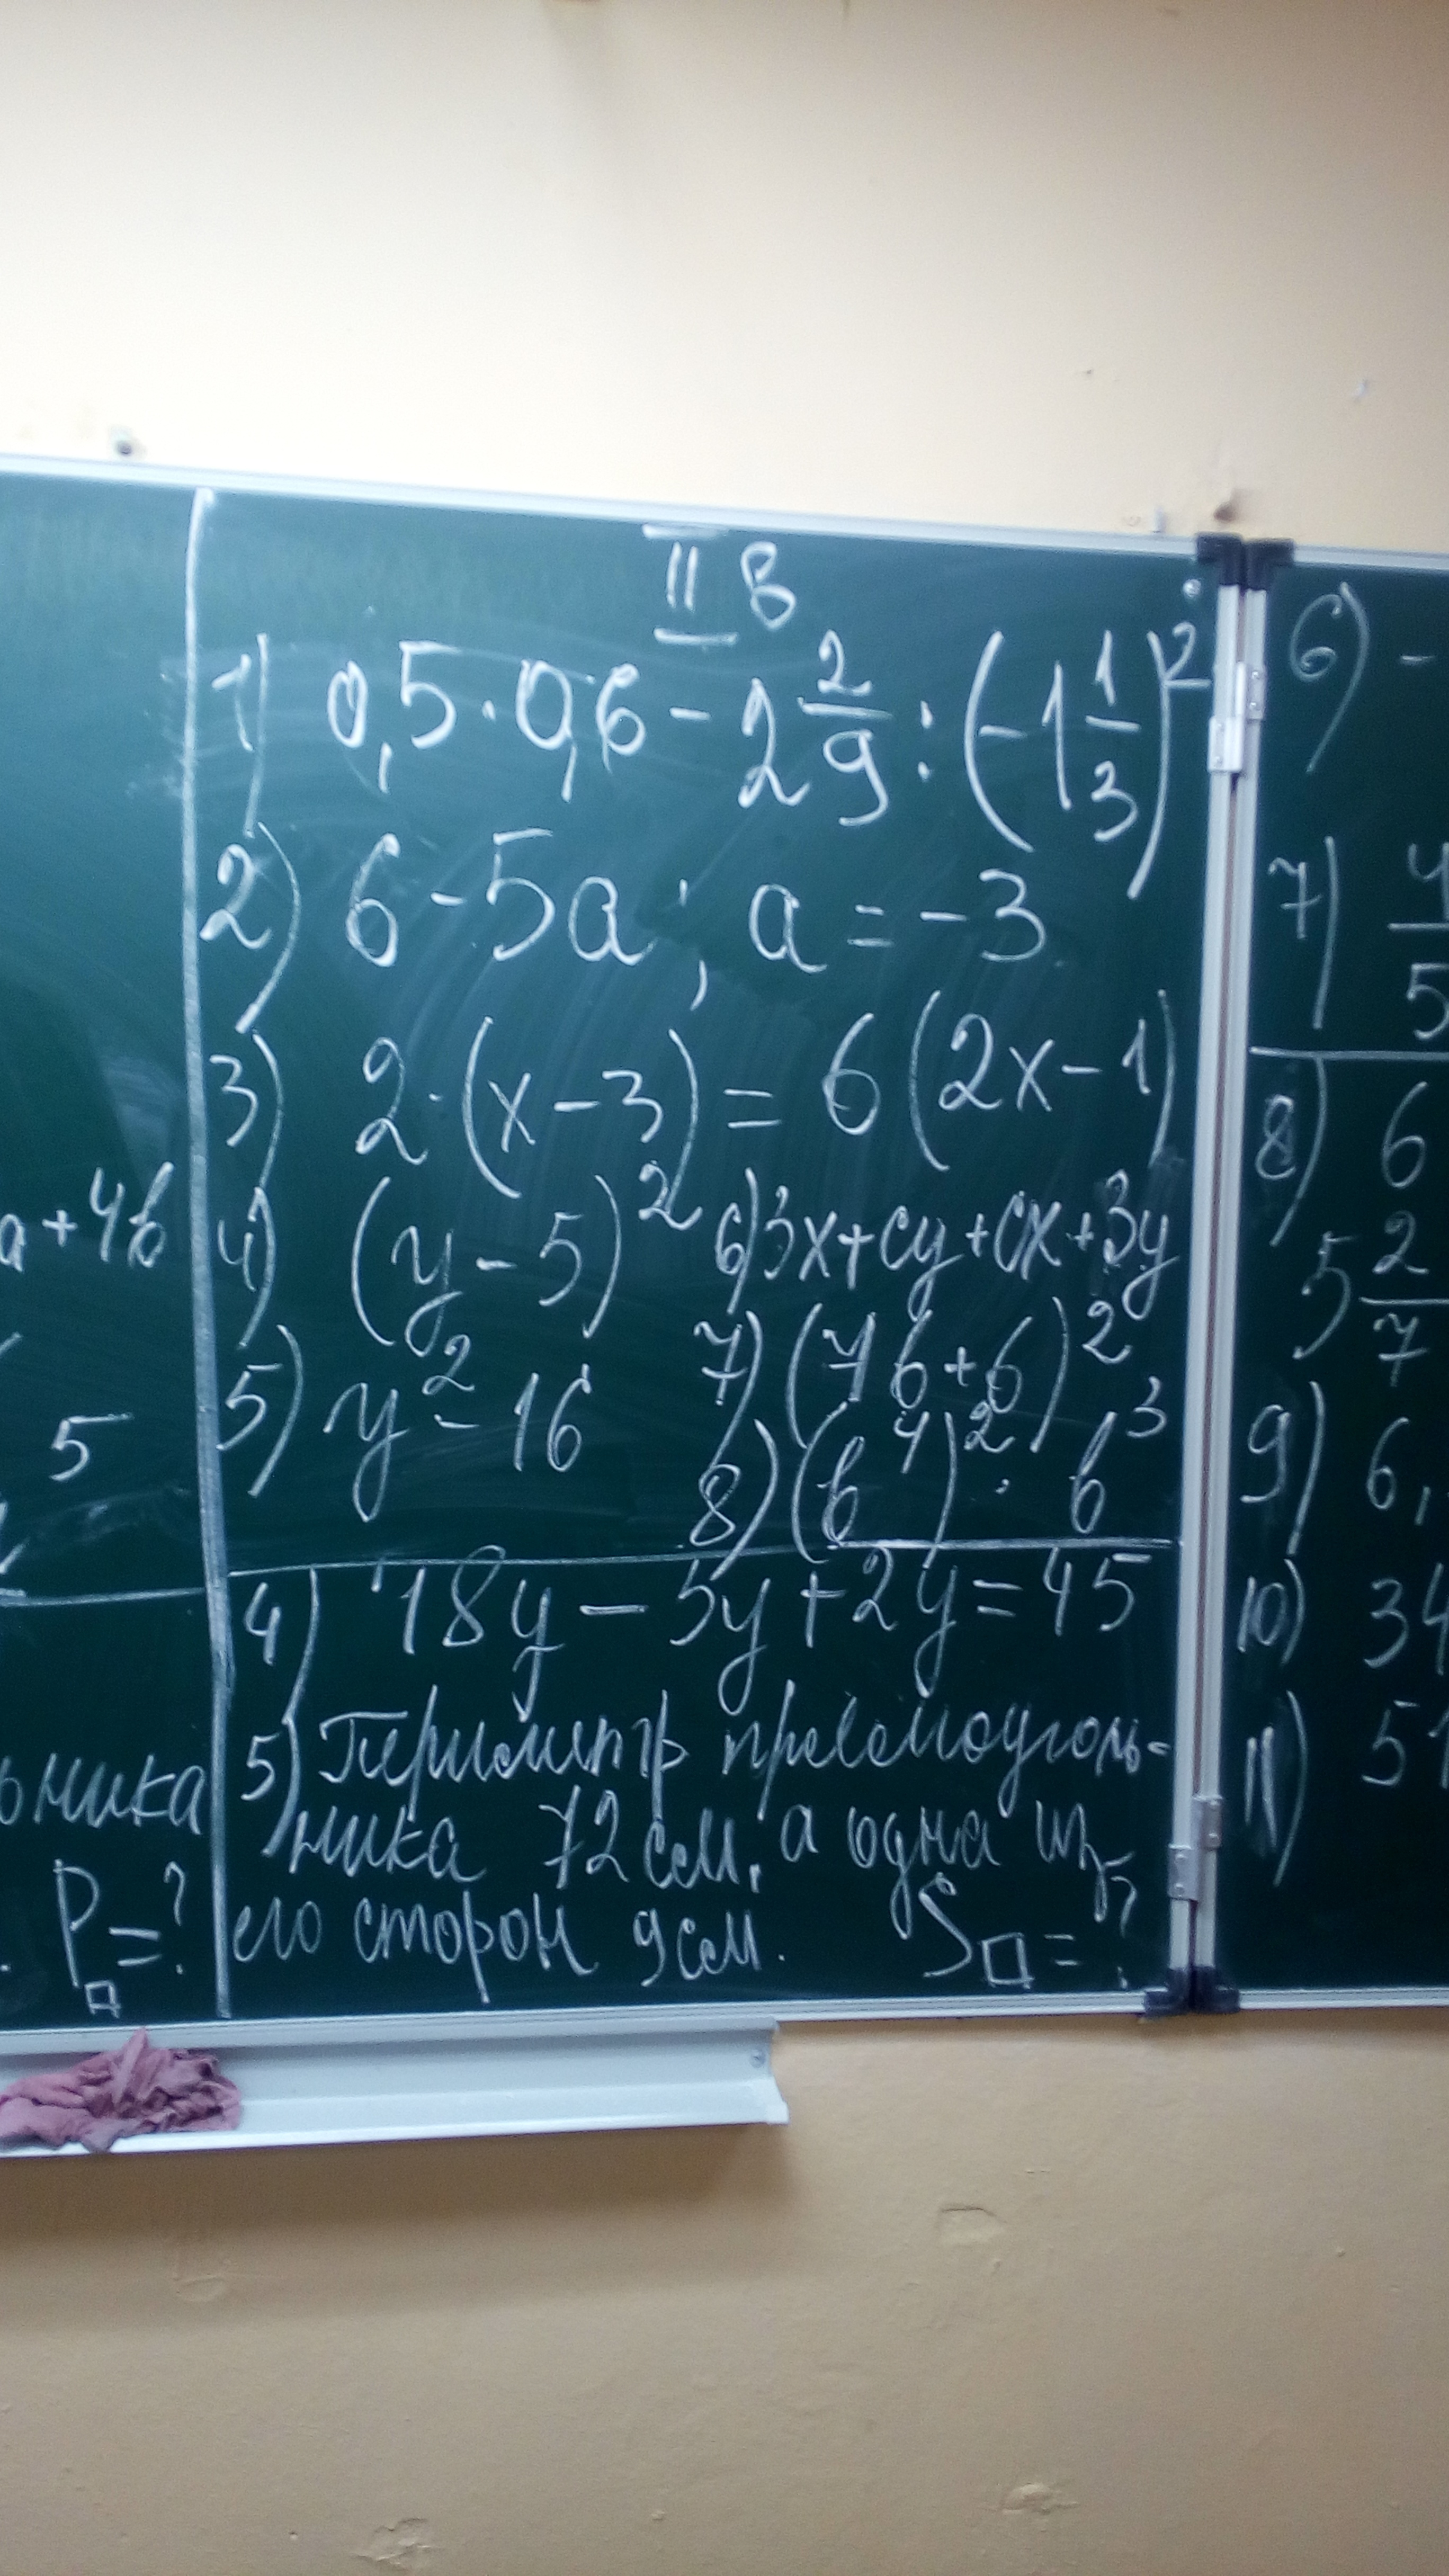 II в
1) 0,5·0,6 - 2 2/9 : (-1 1/3)²
2) 6 - 5a ; a = -3
3) 2·(x - 3) = 6(2x - 1)
4) (y - 5)² 6) 3x + cy + cx + 3y
5) y² - 16 7) (7б + 6)²
8) (b⁴)² · b³
4) 18y - 5y + 2y = 45
5) Периметр прямоуголь-
ника 72 см, а одна из
его сторон 9 см. S□ = ?
a + 4b
5
ьника
. P□ = ?
6) -
7) 4/5
8) 6
5 2/7
9) 6,
10) 34
11) 51